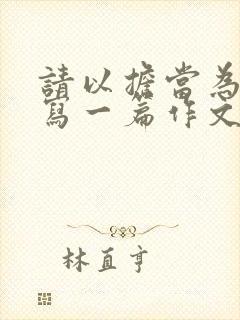 請以擔當為
寫一篇作文
林直亨